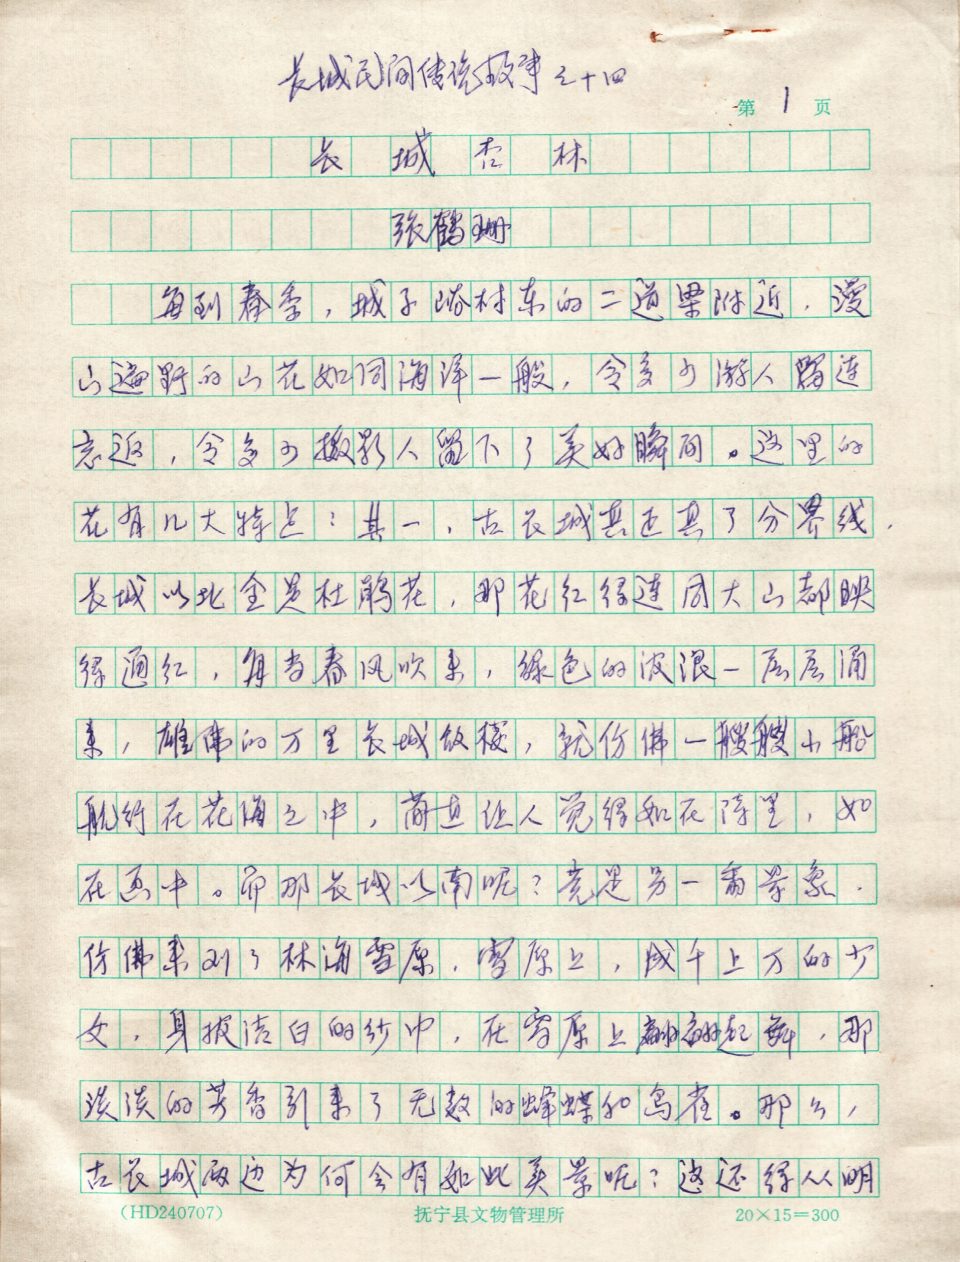 长城民间传说故事之十四
第 1 页
长城杏林
张鹤珊
每到春季，城子峪村东的二道梁附近，漫
山遍野的山花如同海洋一般，令多少游人留连
忘返，令多少摄影人留下了美好瞬间。这里的
花有几大特点：其一，古长城真正是了分界线，
长城以北全是杜鹃花，那花红得连同大山都映
得通红，每当春风吹来，绿色的波浪一层层涌
来，雄伟的万里长城敌楼，就仿佛一艘艘小船
航行在花海之中，简直让人觉得如在诗里，如
在画中。而那长城以南呢？竟是另一番景象．
仿佛来到了林海雪原，雪原上，成千上万的少
女，身披洁白的纱巾，在雪原上翩翩起舞，那
淡淡的芳香引来了无数的蜂蝶和鸟雀。那么，
古长城两边为何会有如此美景呢？这还得从明
(HD240707)
抚宁县文物管理所
20×15=300